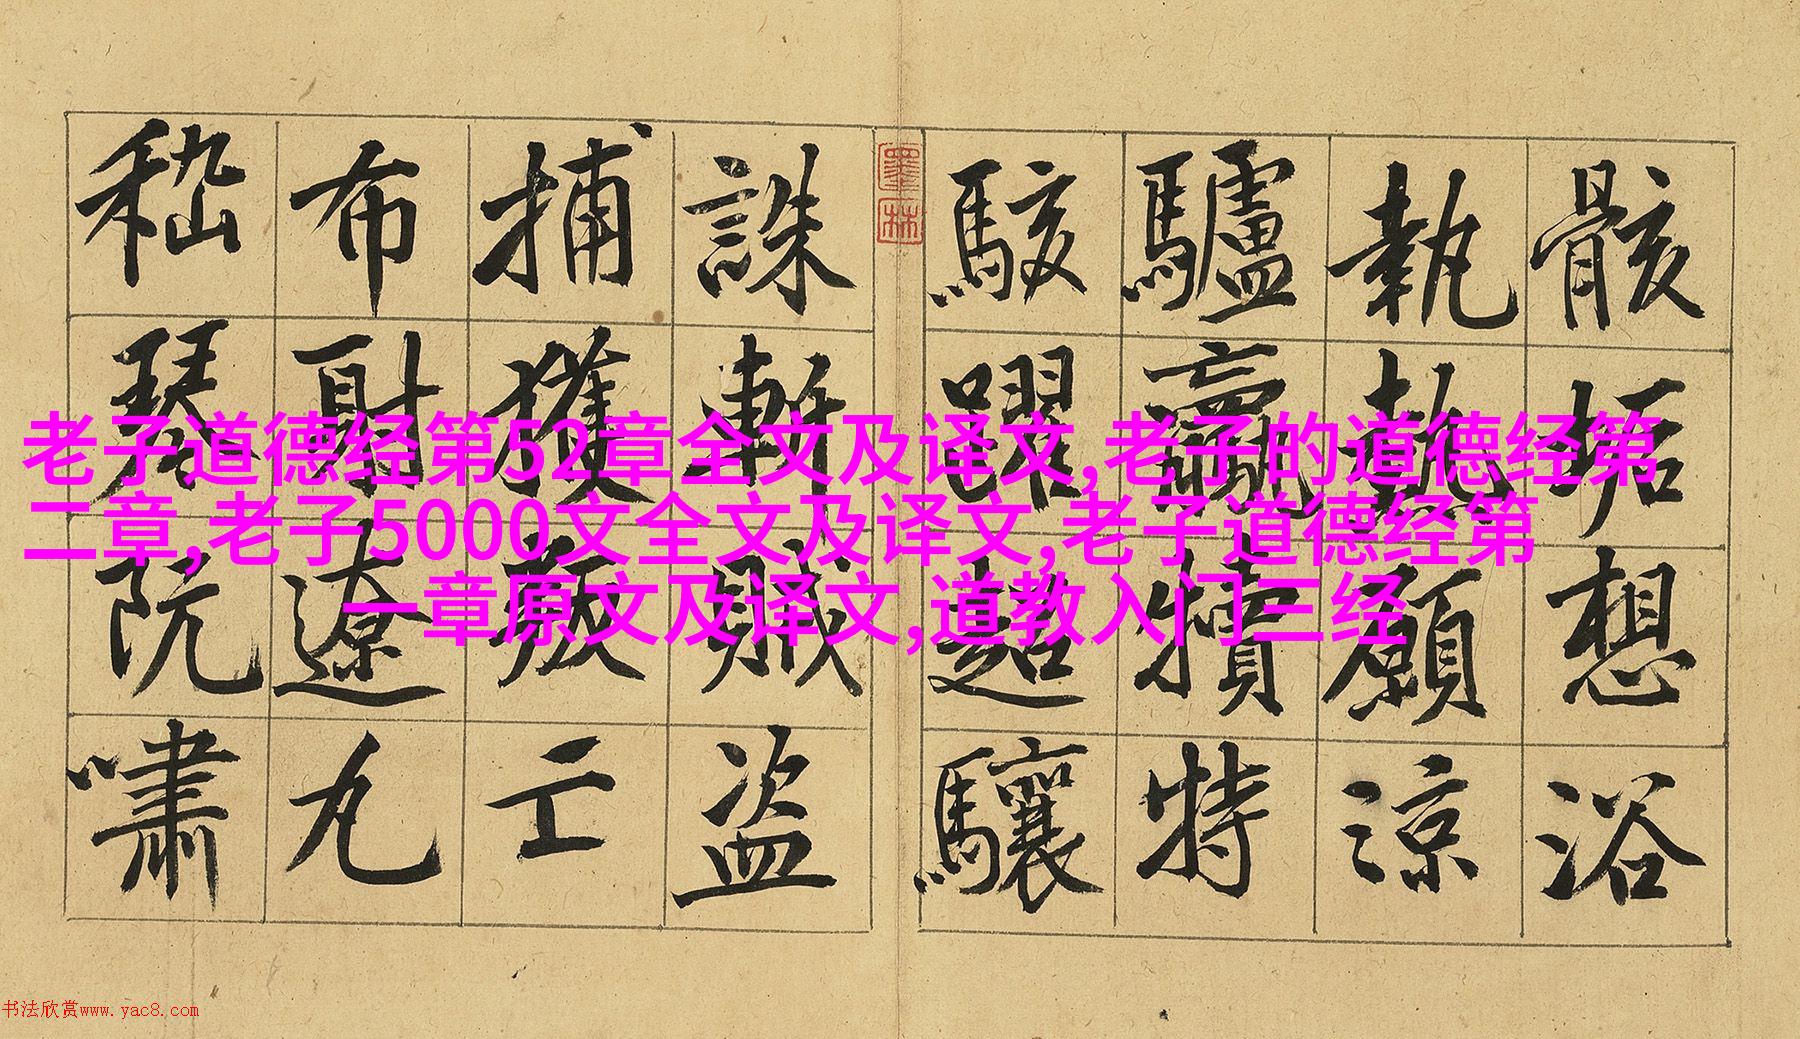 骸垢想浴
執熱願涼
驢驘犢特
駭躍超驤
墨林
誅斬賊盜
捕獲叛亡
布射遼丸
嵇琴阮嘯
老子道德经第52章全文及译文,老子的道德经第
二章,老子5000文全文及译文,老子道德经第
一章原文及译文,道教入门三经
书法欣赏www.yac8.com